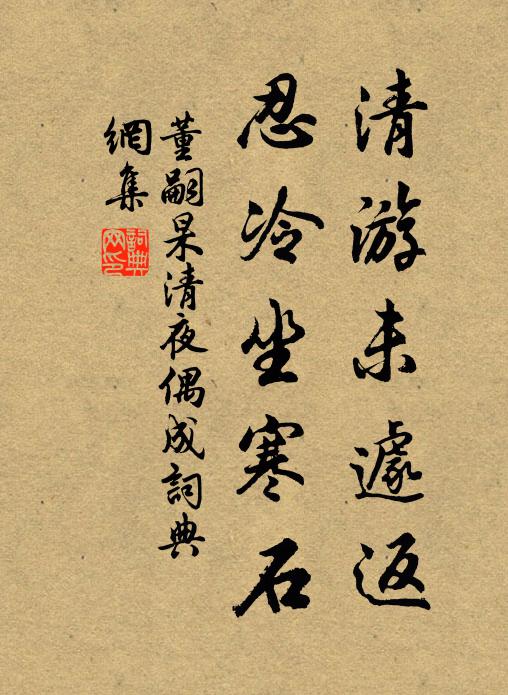 清游未遽返
忍冷坐寒石
董嗣杲清夜偶成詞典
網集
詞典網印